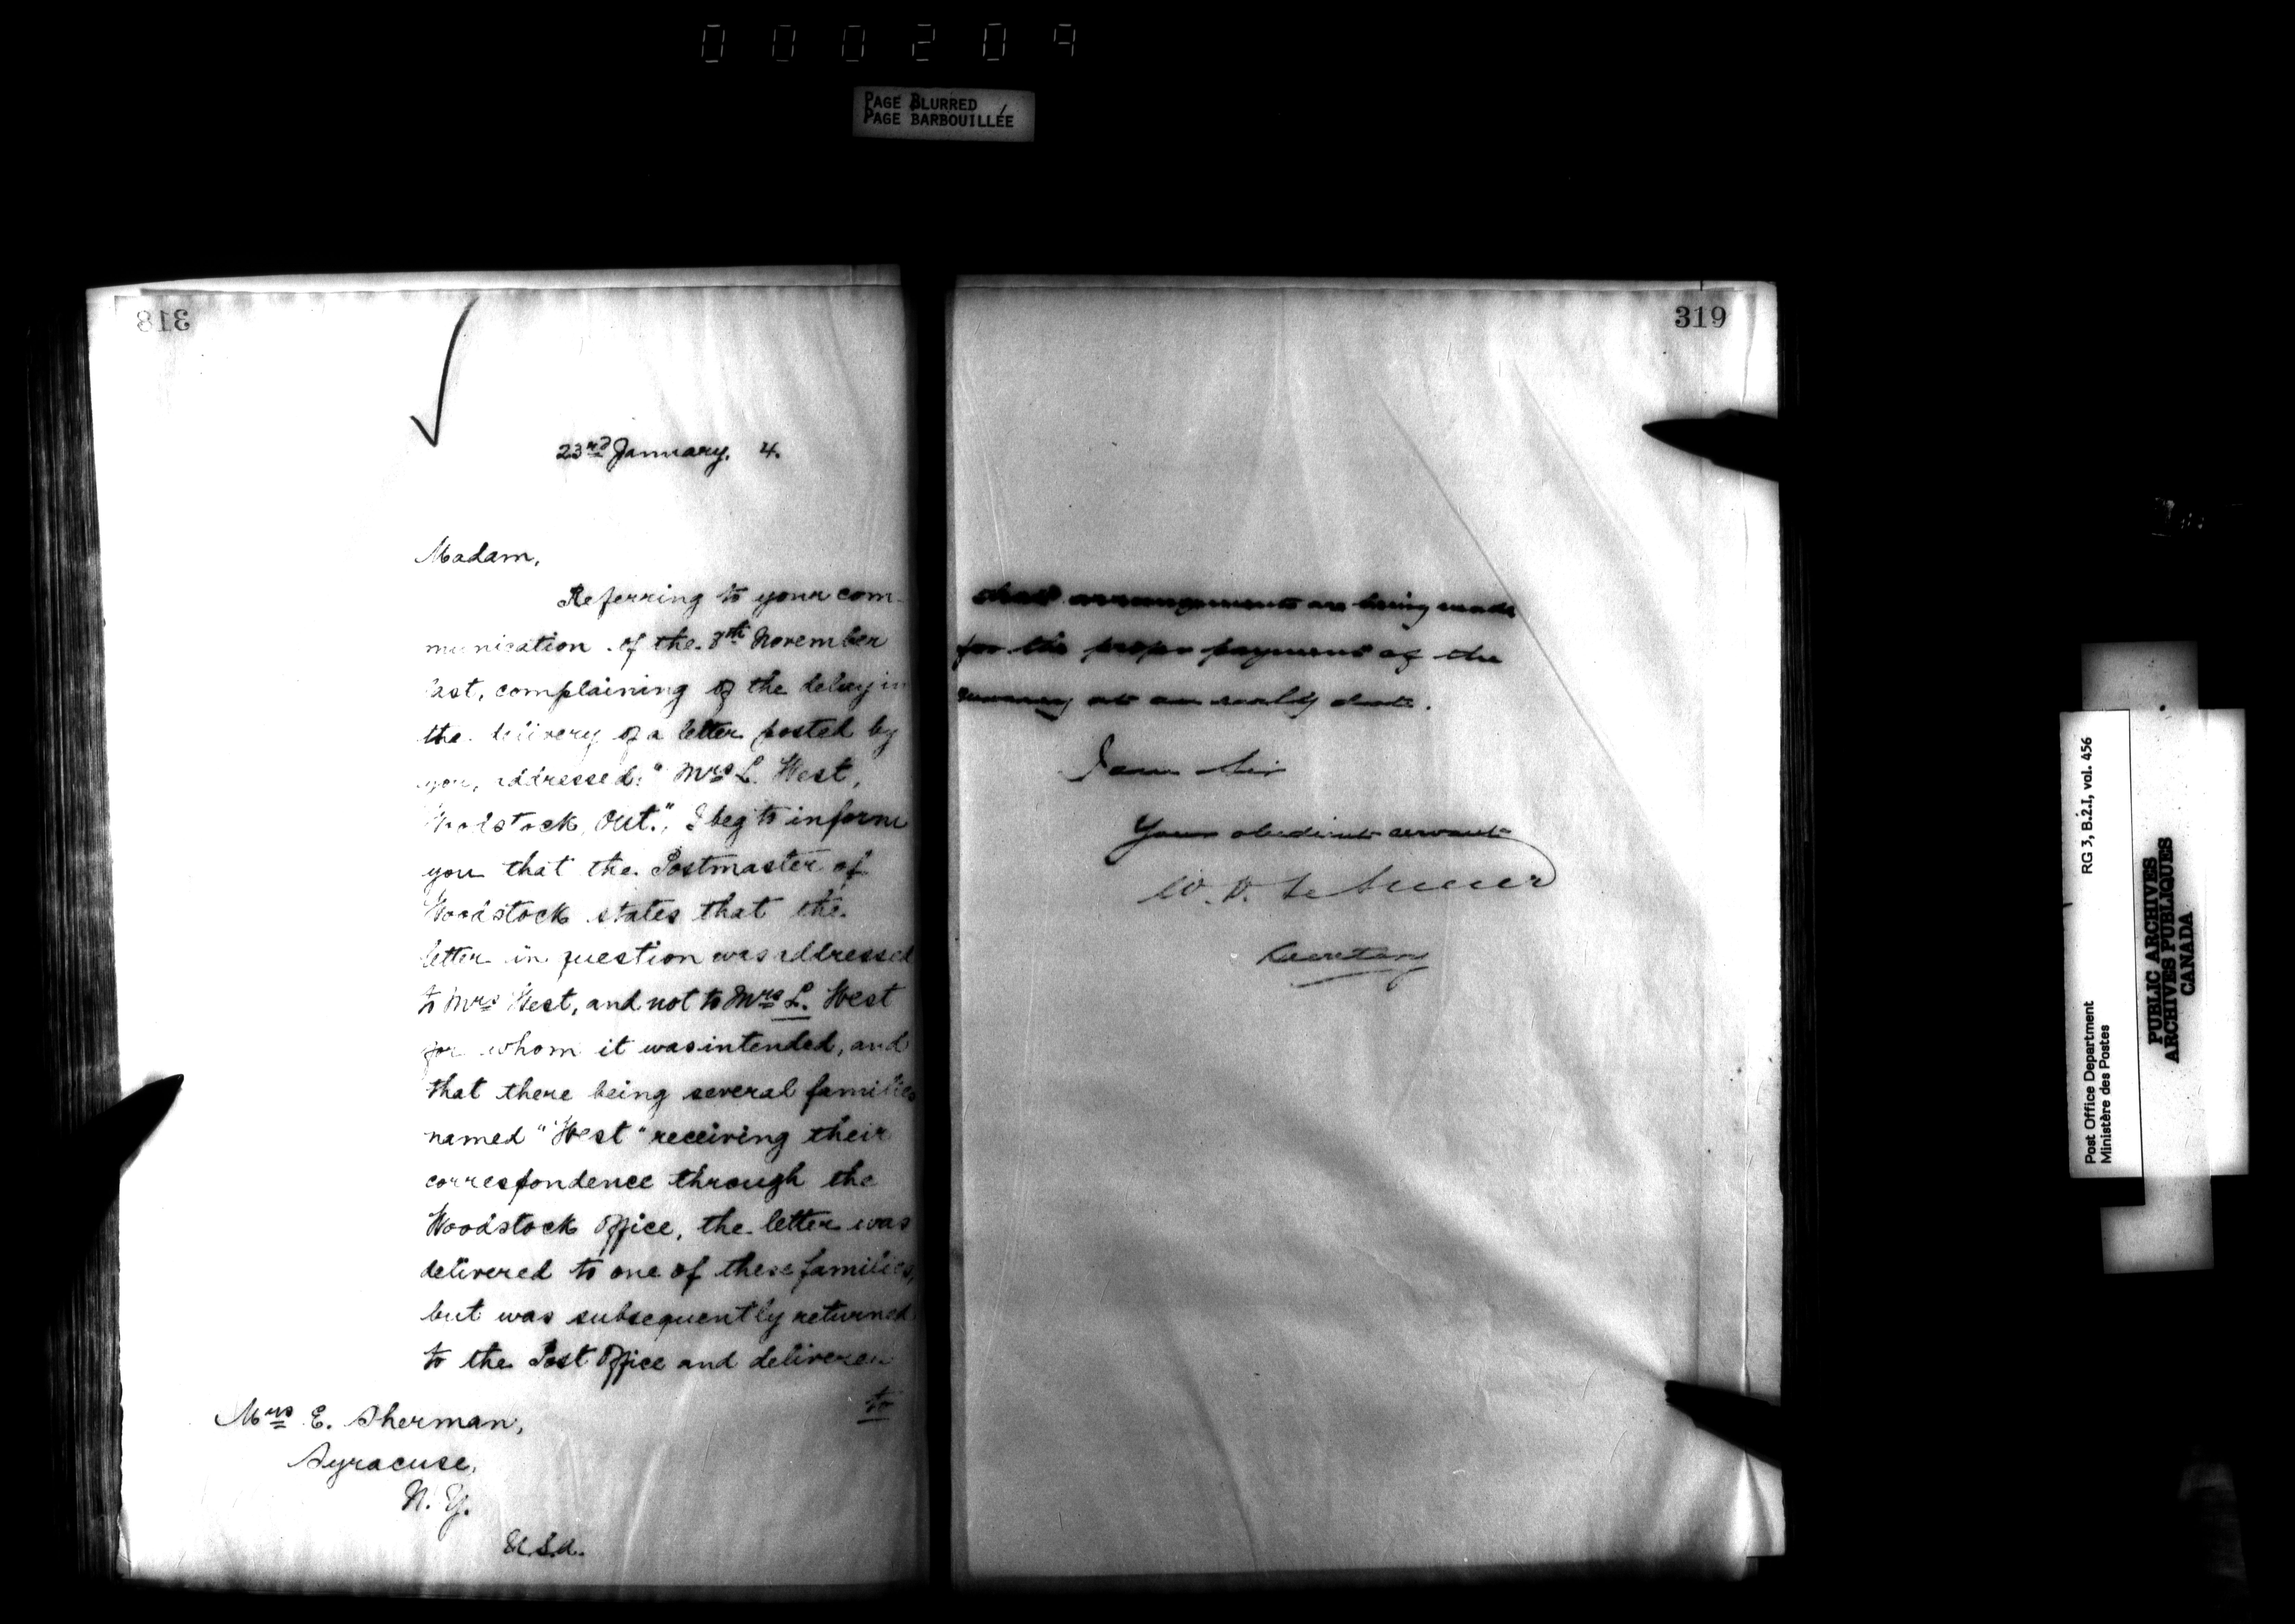 000209
PAGE BLURRED
PAGE BARBOUILLÉE
318
23rd January, 4.
Madam,
Referring to your com-
munication of the 8th November
last, complaining of the delay in
the delivery of a letter posted by
you, addressed: "Mrs L. West,
Woodstock, Ont.", I beg to inform
you that the Postmaster of
Woodstock states that the
letter in question was addressed
to Mrs West, and not to Mrs L. West
for whom it was intended, and
that there being several families
named "West" receiving their
correspondence through the
Woodstock Office, the letter was
delivered to one of these families,
but was subsequently returned
to the Post Office and delivered
to
Mrs E. Sherman,
Syracuse,
N. Y.
U.S.A.
319
that arrangements are being made
for the proper payment of the
at an early date.
I am Sir
Your obedient servant
W. D. LeSueur
Secretary
Post Office Department
Ministère des Postes
RG 3, B.2.I, vol. 456
PUBLIC ARCHIVES
ARCHIVES PUBLIQUES
CANADA